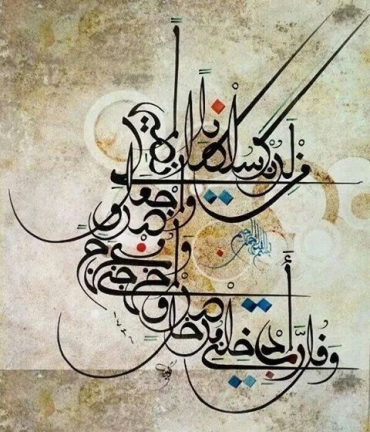 بسم الله الرحمن الرحيم
وقل رب أدخلني
مدخل صدق
وأخرجني مخرج
صدق واجعل لي
من لدنك سلطانا نصيرا